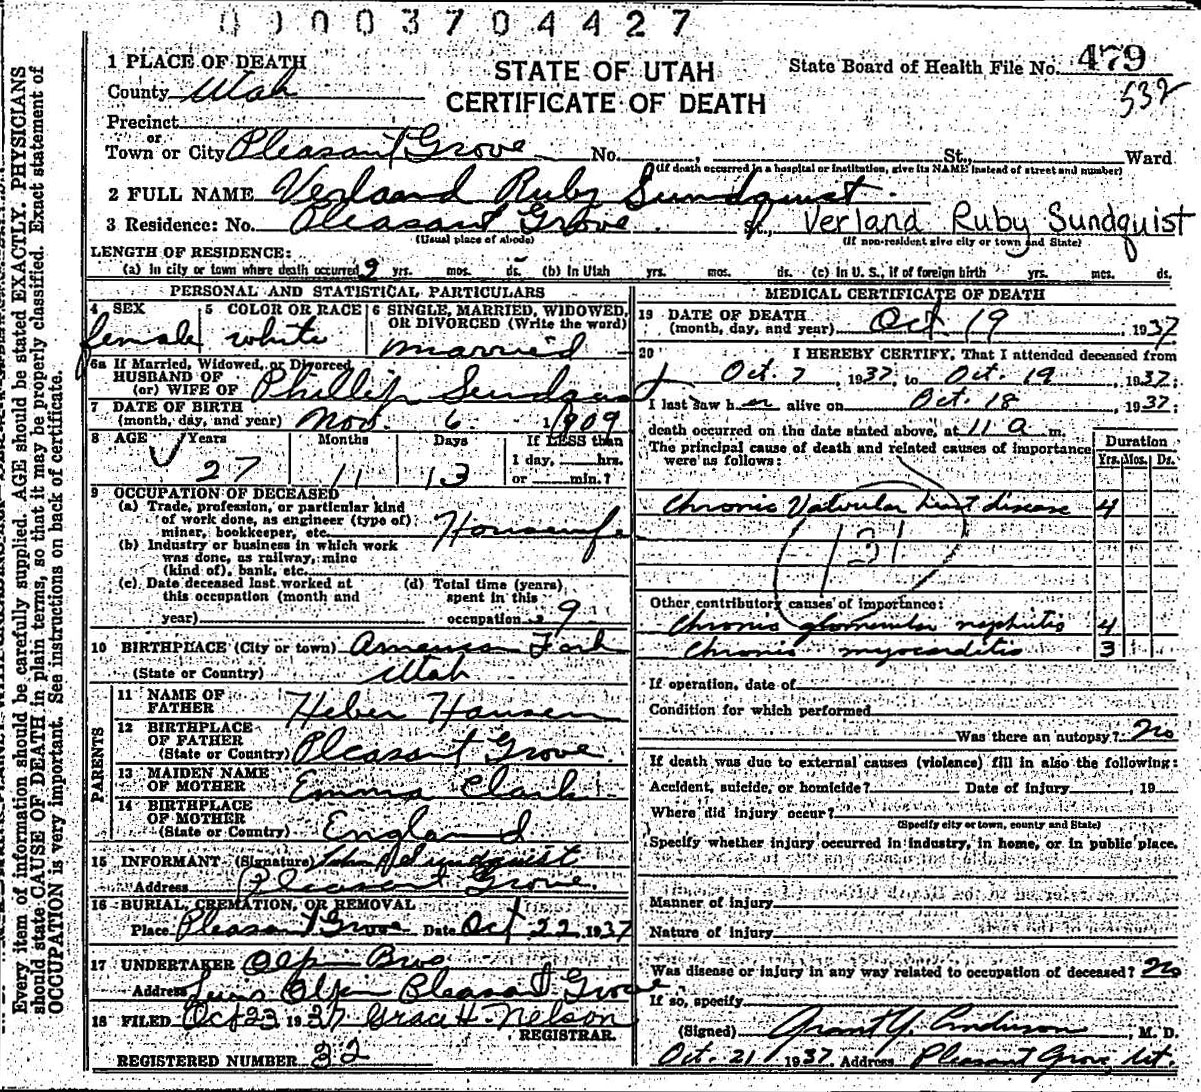 00003704427
1 PLACE OF DEATH
STATE OF UTAH
State Board of Health File No. 479
County Utah
CERTIFICATE OF DEATH
532
Precinct
or
Town or City Pleasant Grove No. , St., Ward
(If death occurred in a hospital or institution, give its NAME instead of street and number)
2 FULL NAME Verland Ruby Sundquist
3 Residence: No. Pleasant Grove St, Verland Ruby Sundquist
(Usual place of abode) (If non-resident give city or town and State)
LENGTH OF RESIDENCE:
(a) in city or town where death occurred 9 yrs. mos. ds. (b) In Utah yrs. mos. ds. (c) in U. S., if of foreign birth yrs. mos. ds.
PERSONAL AND STATISTICAL PARTICULARS
4 SEX 5 COLOR OR RACE 6 SINGLE, MARRIED, WIDOWED,
OR DIVORCED (Write the word)
female white married
6a If Married, Widowed, or Divorced
HUSBAND OF
(or) WIFE OF Phillip Sundquist
7 DATE OF BIRTH
(month, day, and year) Nov. 6 1909
8 AGE Years Months Days If LESS than
1 day, hrs.
or min.?
27 11 13
9 OCCUPATION OF DECEASED
(a) Trade, profession, or particular kind
of work done, as engineer (type of)
miner, bookkeeper, etc. Housewife
(b) Industry or business in which work
was done, as railway, mine
(kind of), bank, etc.
(c) Date deceased last worked at (d) Total time (years)
this occupation (month and spent in this
year) occupation 9
10 BIRTHPLACE (City or town) American Fork
(State or Country) Utah
PARENTS
11 NAME OF
FATHER Heber Hansen
12 BIRTHPLACE
OF FATHER
(State or Country) Pleasant Grove
13 MAIDEN NAME
OF MOTHER Emma Clark
14 BIRTHPLACE
OF MOTHER
(State or Country) England
15 INFORMANT (Signature) Sundquist
Address Pleasant Grove.
16 BURIAL, CREMATION, OR REMOVAL
Place Pleasant Grove Date Oct 22 1937
17 UNDERTAKER Olpin Bros
Address Olpin Pleasant Grove
18 FILED Oct 23 1937 Grace H. Nelson
REGISTRAR.
REGISTERED NUMBER 32
MEDICAL CERTIFICATE OF DEATH
19 DATE OF DEATH
(month, day, and year) Oct 19 1937
20 I HEREBY CERTIFY, That I attended deceased from
Oct. 7, 1937, to Oct. 19, 1937:
I last saw her alive on Oct. 18, 1937:
death occurred on the date stated above, at 11 a m.
The principal cause of death and related causes of importance
were as follows:
Duration
Yrs. Mos. Ds.
Chronic Valvular heart disease 4
131
Other contributory causes of importance:
Chronic glomerular nephritis 4
Chronic myocarditis 3
If operation, date of
Condition for which performed
Was there an autopsy? no
If death was due to external causes (violence) fill in also the following:
Accident, suicide, or homicide? Date of injury , 19
Where did injury occur?
(Specify city or town, county and State)
Specify whether injury occurred in industry, in home, or in public place.
Manner of injury
Nature of injury
Was disease or injury in any way related to occupation of deceased? no
If so, specify
(Signed) Grant Y. Anderson, M. D.
Oct. 21 1937 Address Pleasant Grove, Ut.
Every item of information should be carefully supplied. AGE should be stated EXACTLY. PHYSICIANS
should state CAUSE OF DEATH in plain terms, so that it may be properly classified. Exact statement of
OCCUPATION is very important. See instructions on back of certificate.